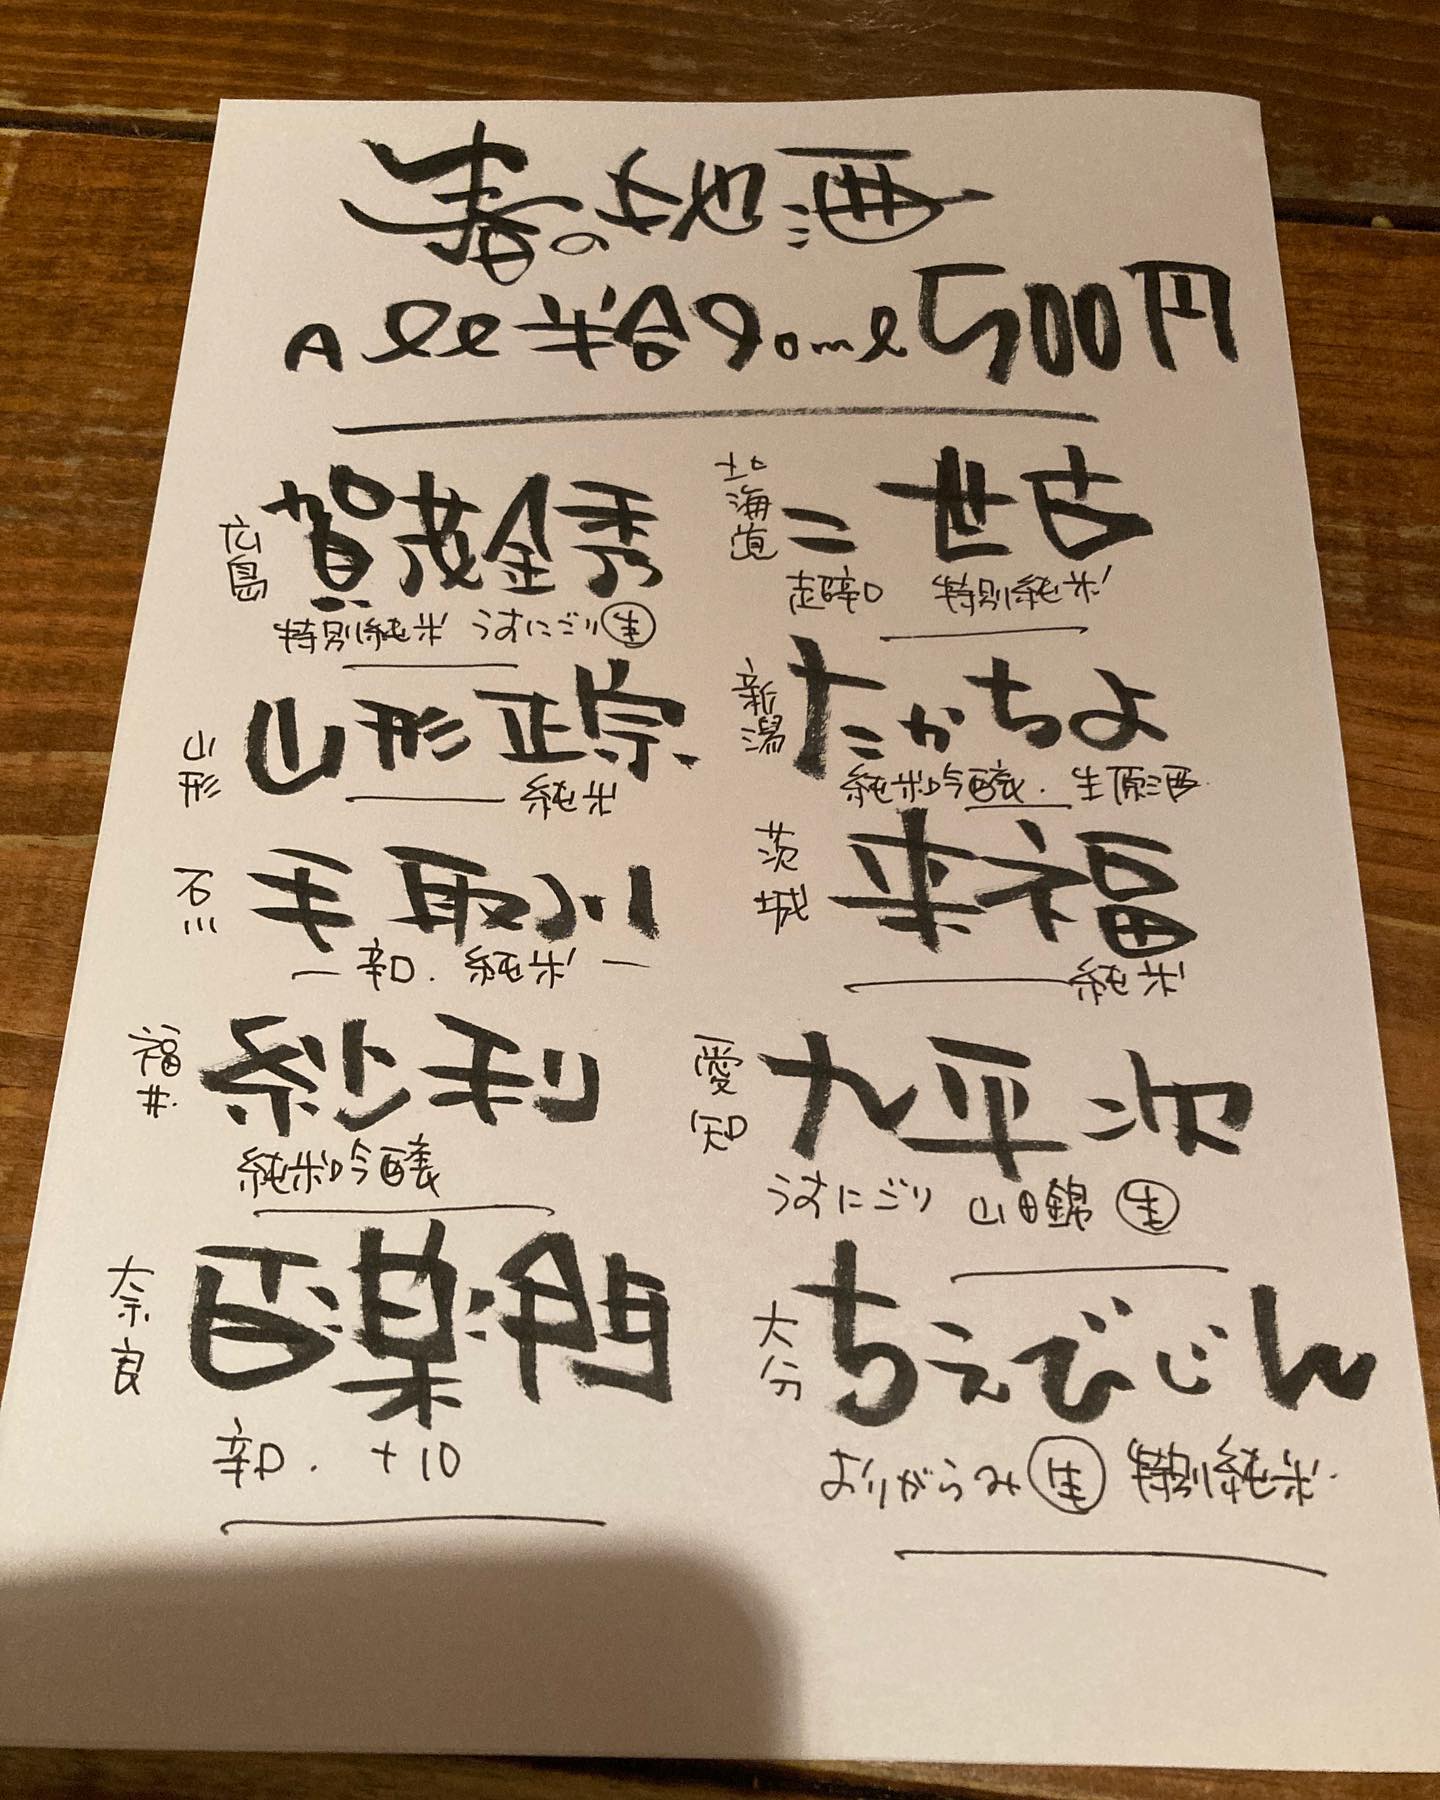 春の地酒
All半合90ml500円
広島
賀茂金秀
特別純米 うすにごり 生
山形
山形正宗
純米
石川
手取川
辛口. 純米
福井
紗利
純米吟醸
奈良
百楽門
辛口. +10
北海道
二世古
超辛口 特別純米
新潟
たかちよ
純米吟醸. 生原酒
茨城
来福
純米
愛知
九平次
うすにごり 山田錦 生
大分
ちえびじん
おりがらみ 生 特別純米